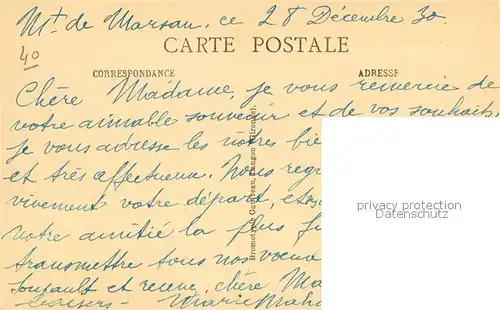 Mt de Marsan, ce 28 Décembre 30.
40
CARTE POSTALE
CORRESPONDANCE
ADRESSE
Chère Madame, je vous remercie de
votre aimable souvenir et de vos souhaits,
je vous adresse les nôtres bie
et très affectueux. Nous regr
vivement votre départ, et
notre amitié la plus
transmettre tous nos voeux
et recevez, chère Ma
baisers - Marie Mah
Bromotypie Gautreau, Langon (Gironde)
privacy protection
Datenschutz